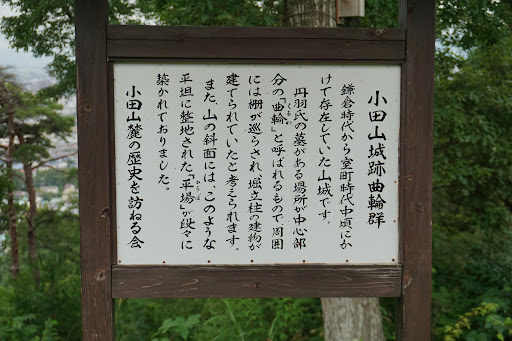 小田山城跡 曲輪群
鎌倉時代から室町時代中頃にか
けて存在していた山城です。
丹羽氏の墓がある場所が中心部
分の「曲輪」と呼ばれるもので周囲
くるわ
には柵が巡らされ、堀立柱の建物が
建てられていたと考えられます。
また、山の斜面には、このような
平坦に整地された「平場」が段々に
ひらば
築かれておりました。
小田山麓の歴史を訪ねる会